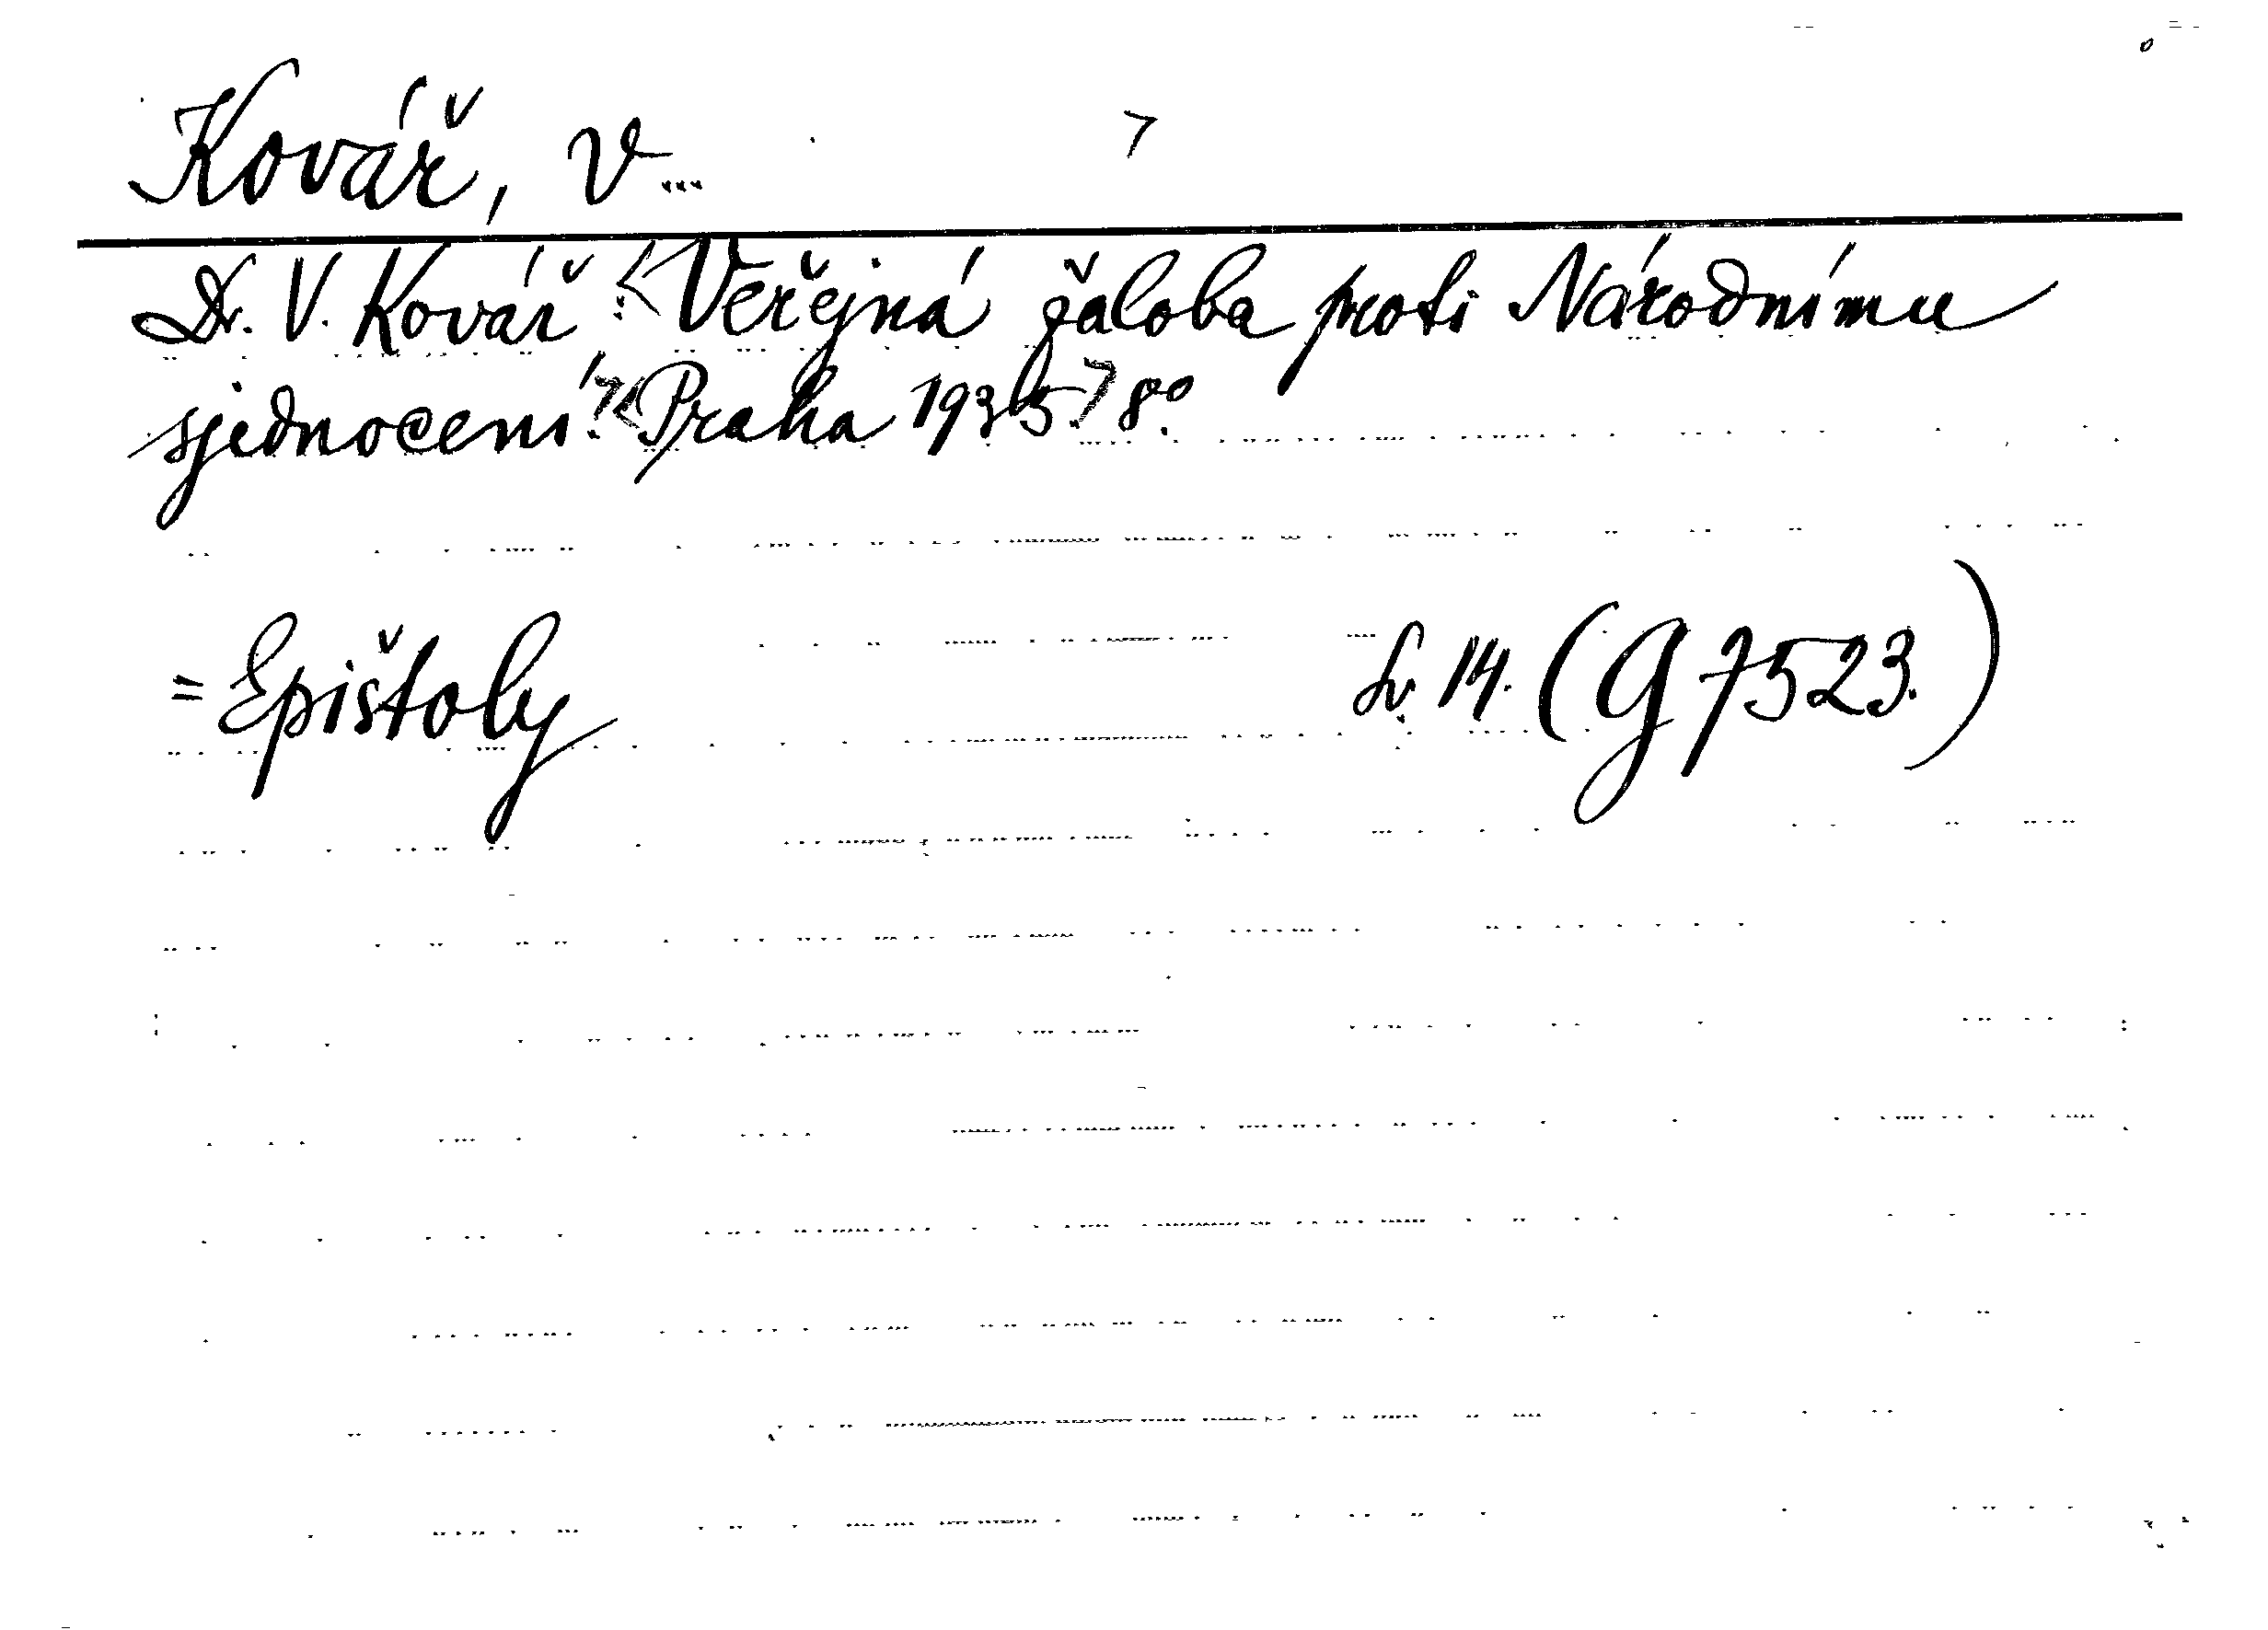 Kovář, V...
Dr. V. Kovář: Veřejná žaloba proti Národnímu
sjednocení. Praha 1935. 8°.
= Epištoly Sv. 14. (G 7523.)